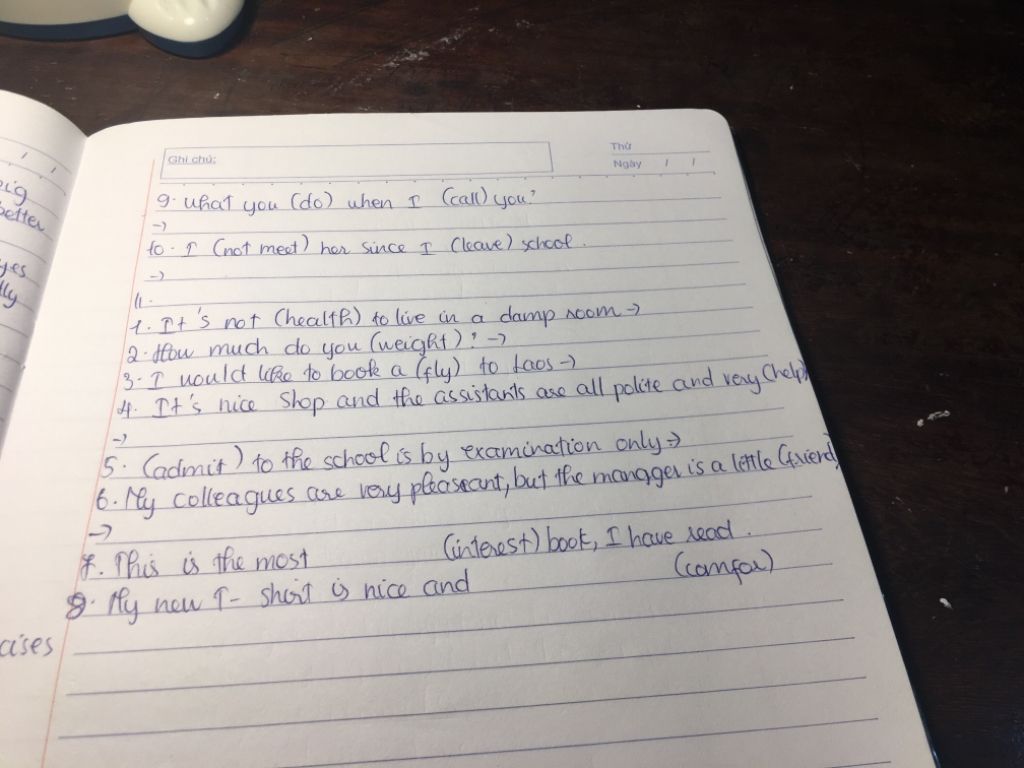 Ghi chú:
Thứ
Ngày / /
9. What you (do) when I (call) you?
→
10. I (not meet) her since I (leave) school.
→
11.
1. It's not (health) to live in a damp room →
2. How much do you (weight)? →
3. I would like to book a (fly) to Laos →
4. It's nice shop and the assistants are all polite and very (help)
→
5. (admit) to the school is by examination only →
6. My colleagues are very pleaseant, but the manager is a little (friend)
→
7. This is the most (interest) book, I have read.
8. My new T-shirt is nice and (comfor)
big
better
yes
lly
cises